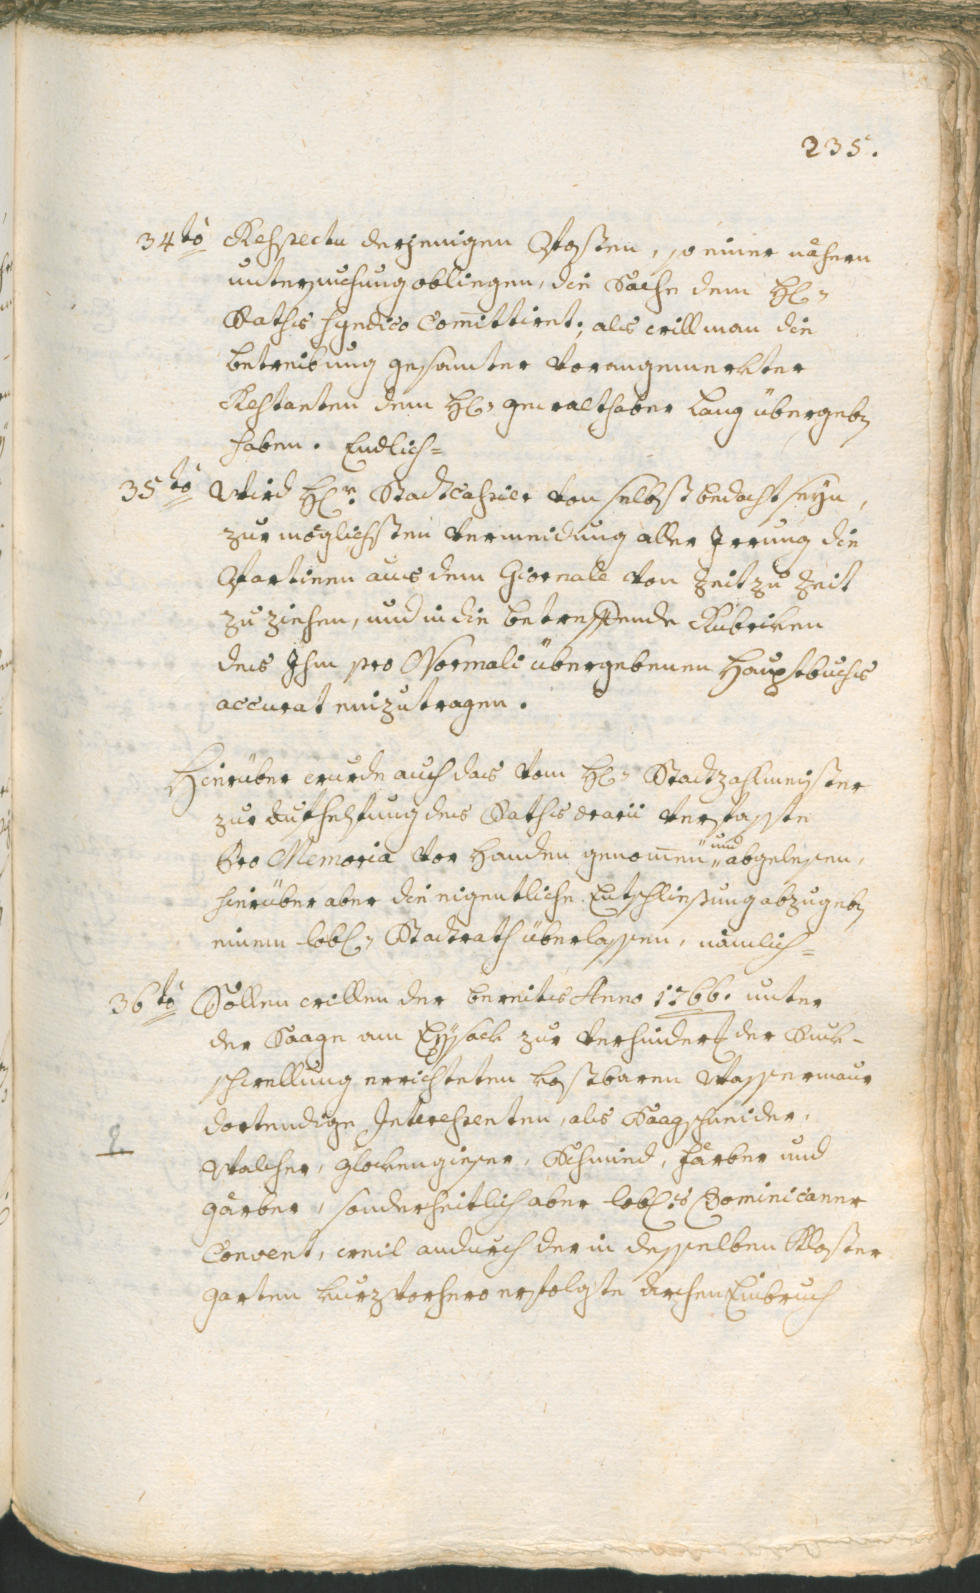 235.
34to Respectu derjenigen Posten, so einer nähern
untersuchung obliegen, die Sache dem H:
Raths Syndico Committiret; als will man die
betreibung gesamter Vorangemerkter
Restanten dem H: gewalthaber Lang übergeb
haben. Endlich=
35to Wird H:r Stadtcassier von selbst bedacht seyn,
zur möglichsten Vermeidung aller Irrung die
Partinen aus dem Giornale von Zeit zu Zeit
zu ziehen, und in die betreffende Rubricken
des Ihm pro Normali übergebenen Hauptbuchs
accurat einzutragen.
Hierüber wurde auch das vom H: Stadtzahlmeister
zur aufhelfung des Raths ærarii verfasste
Pro Memoria vor Handen genommen und abgelesen,
hierüber aber die eigentliche Entschliessung abzugeb
einem löbl: Stadtrath überlassen, nämlich=
36to Sollen willen der bereits Anno 1766. unter
der Saage am Eysack zur verhinder der Ruck-
schwellung errichteten kostbaren Wassermaur
dortendige Interessenten, als Saagschneider,
Walcher, Glockengiesser, Schmied, färber und
gärber, sonderheitlich aber löbl:s Dominicaner
Convent, weil andurch der in desselben Kloster
garten kurz vorhero erfolgte Archen Einbruch